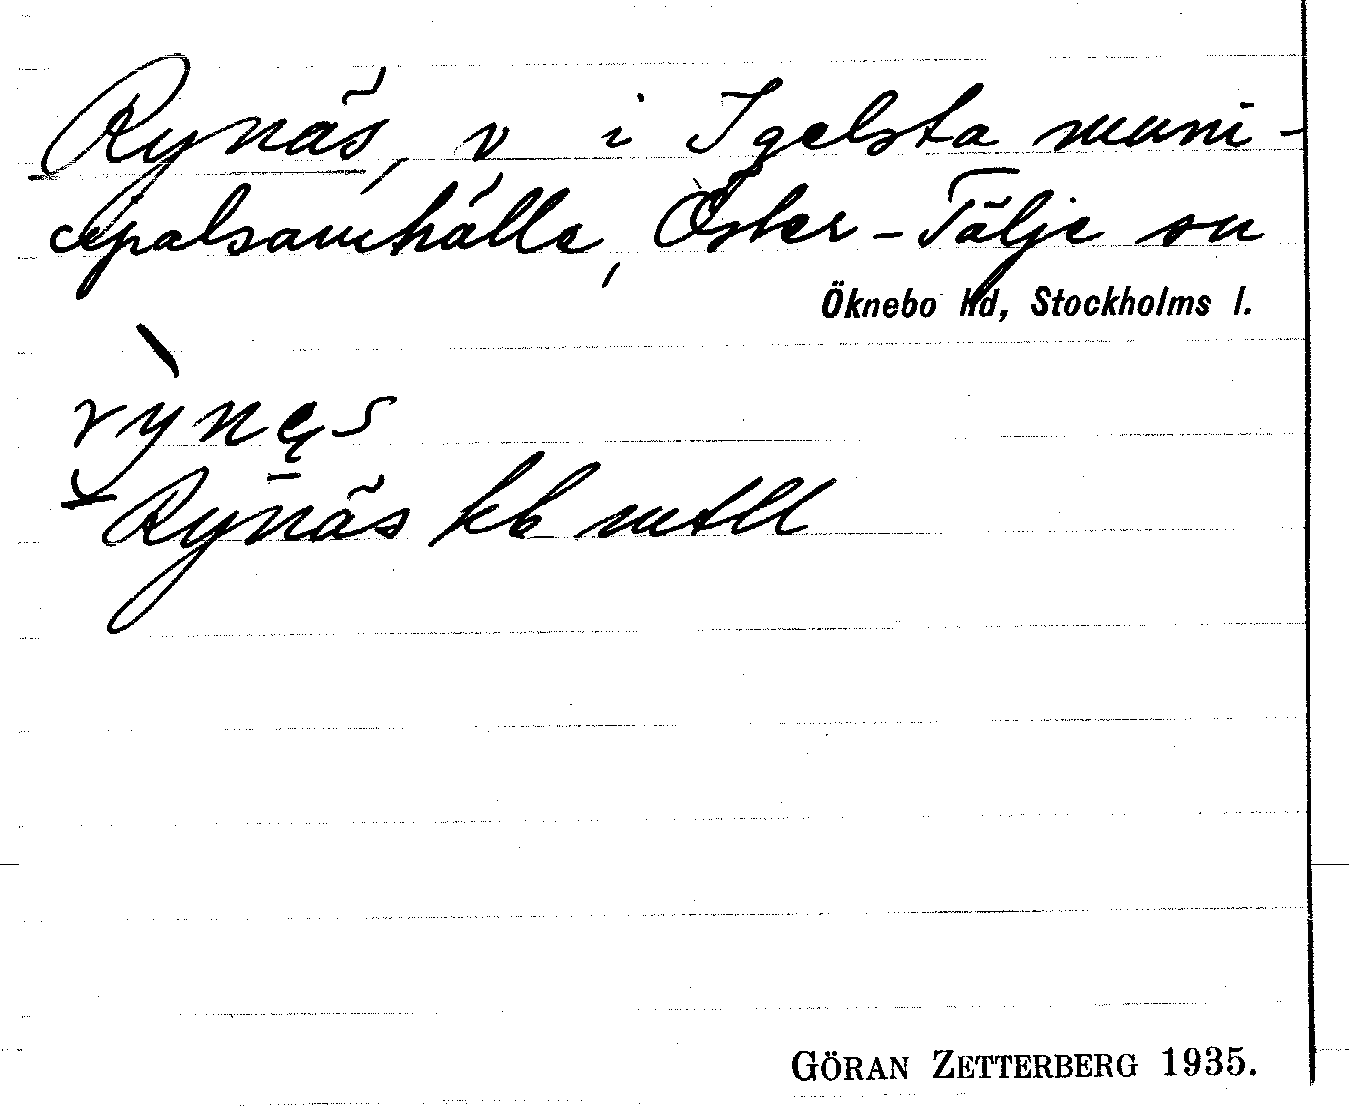 Rynäs, v i Igelsta muni-
cipalsamhälle, Öster-Tälje sn
Öknebo hd, Stockholms l.
rỳnęs
Rynäs kb mtll
GÖRAN ZETTERBERG 1935.